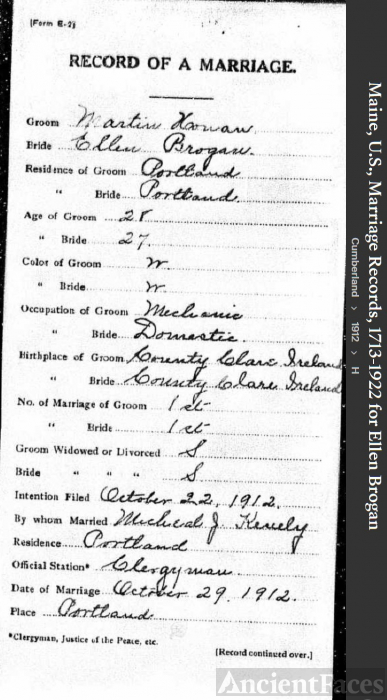 (Form E-2)
RECORD OF A MARRIAGE.
Groom Martin Honan
Bride Ellen Brogan.
Residence of Groom Portland
" Bride Portland.
Age of Groom 28
" Bride 27.
Color of Groom W.
" Bride W.
Occupation of Groom Mechanic
" Bride Domestic.
Birthplace of Groom County Clare Ireland
" Bride County Clare Ireland
No. of Marriage of Groom 1st
" Bride 1st
Groom Widowed or Divorced S
Bride " " " S
Intention Filed October 22, 1912.
By whom Married Micheal J.
Residence Portland
Official Station* Clergyman
Date of Marriage October 29. 1912.
Place Portland
*Clergyman, Justice of the Peace, etc.
[Record continued over.]
Maine, U.S., Marriage Records, 1713-1922 for Ellen Brogan
Cumberland > 1912 > H
AncientFaces